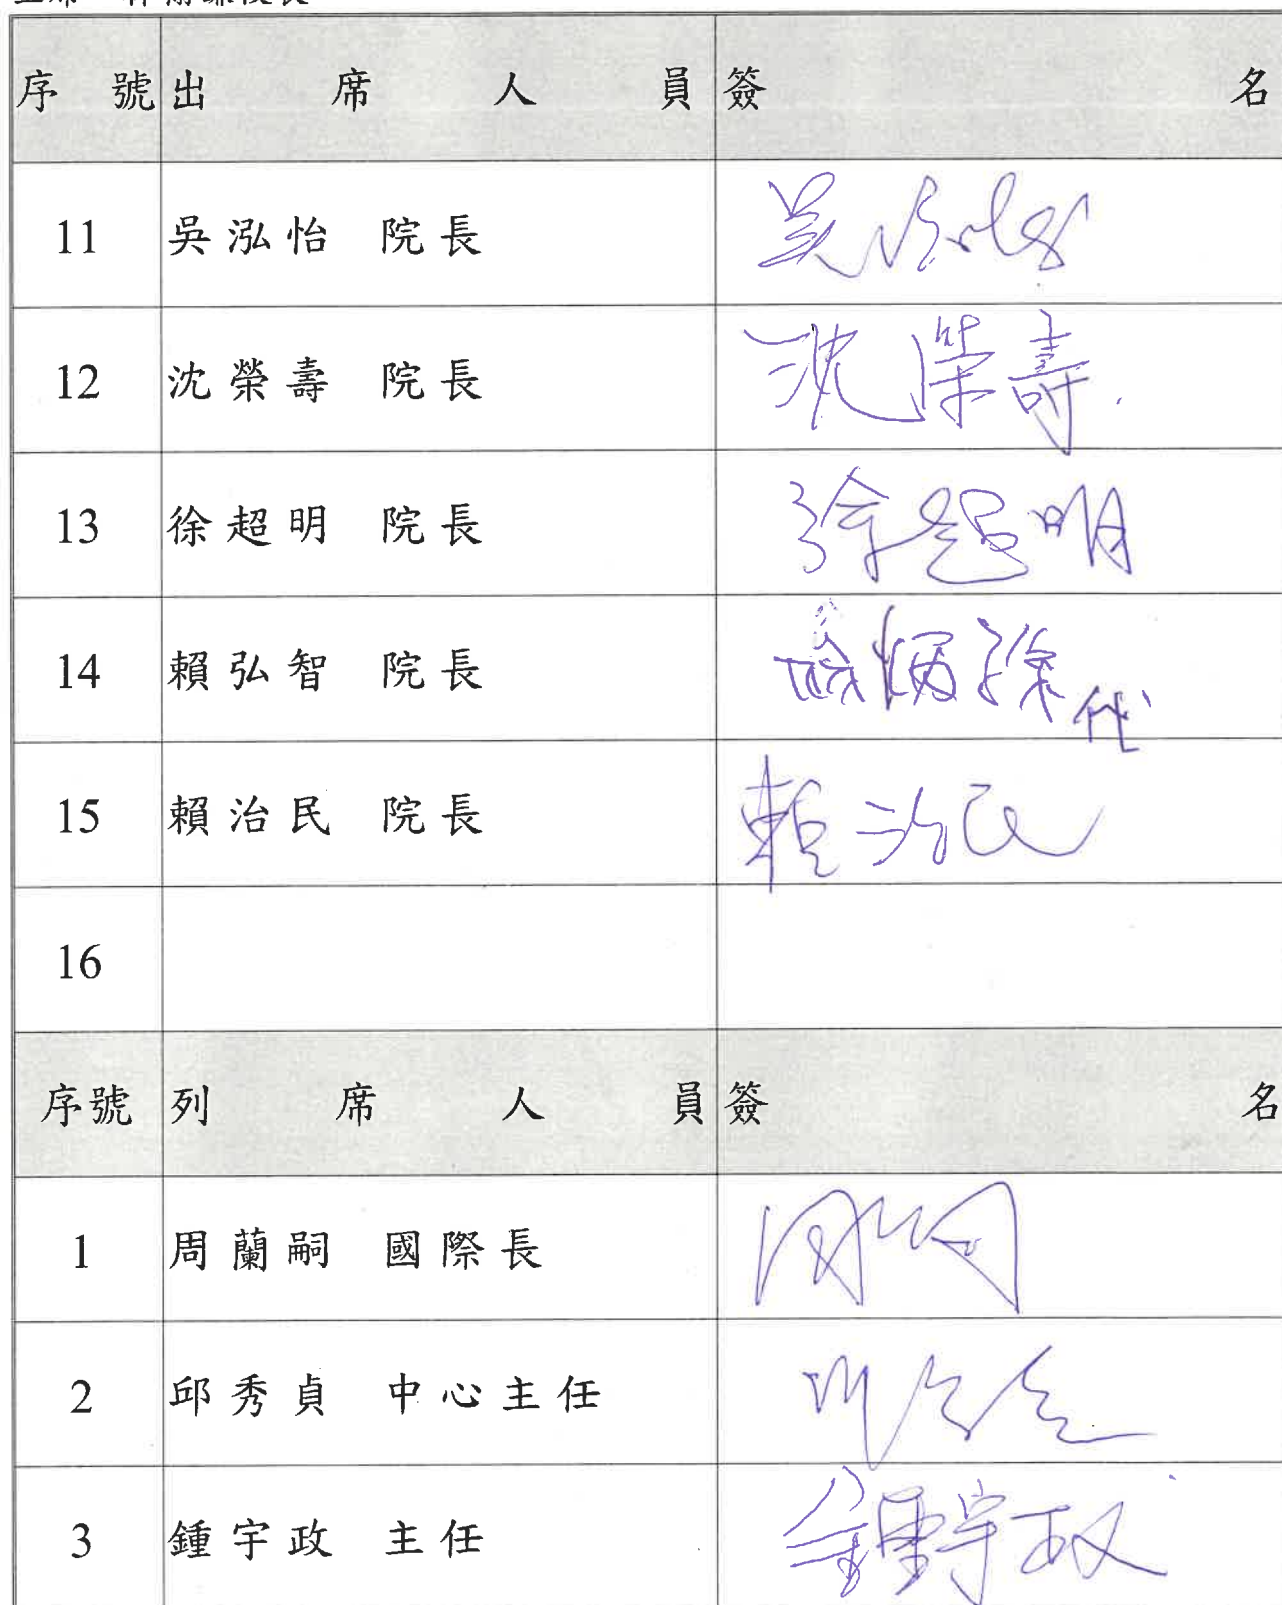 序 號 出 席 人 員 簽 名
11 吳泓怡 院長 吳泓怡
12 沈榮壽 院長 沈榮壽
13 徐超明 院長 徐超明
14 賴弘智 院長 代
15 賴治民 院長 賴治民
16
序號 列 席 人 員 簽 名
1 周蘭嗣 國際長
2 邱秀貞 中心主任
3 鍾宇政 主任 鍾宇政